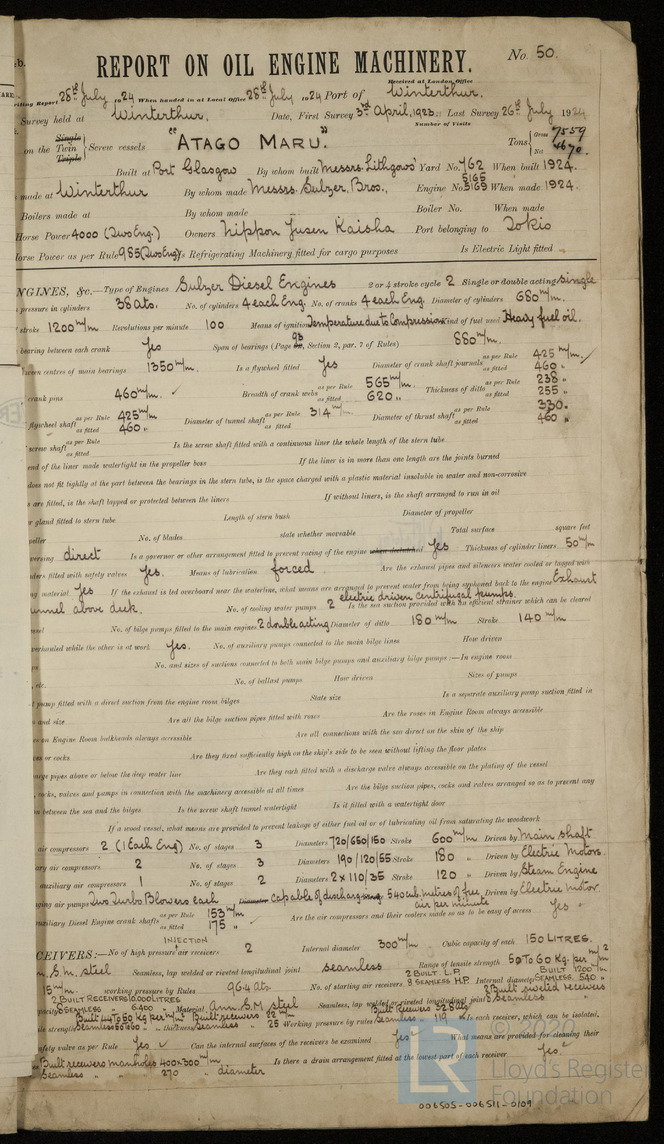 REPORT ON OIL ENGINE MACHINERY.
No. 50.
Received at London Office
28th July 1924 When handed in at Local Office 28th July 1924 Port of Winterthur.
Survey held at Winterthur. Date, First Survey 3rd April, 1923. Last Survey 26th July 1924
Number of Visits
on the Single Twin Triple Screw vessels "ATAGO MARU." Tons Gross 7559 Net 4670.
Built at Port Glasgow By whom built Messrs. Lithgows Yard No. 762 When built 1924.
made at Winterthur By whom made Messrs. Sulzer Bros., Engine No. 5165 5169 When made 1924.
Boilers made at By whom made Boiler No. When made
Horse Power 4000 (Two Eng.) Owners Nippon Yusen Kaisha Port belonging to Tokio
Horse Power as per Rule 985 (Two Eng) Is Refrigerating Machinery fitted for cargo purposes Is Electric Light fitted
ENGINES, &c.—Type of Engines Sulzer Diesel Engines 2 or 4 stroke cycle 2 Single or double acting Single
pressure in cylinders 38 ats. No. of cylinders 4 each Eng. No. of cranks 4 each Eng. Diameter of cylinders 680 m/m.
stroke 1200 m/m Revolutions per minute 100 Means of ignition Temperature due to Compression Kind of fuel used Heavy fuel oil.
bearing between each crank Yes Span of bearings (Page 93, Section 2, par. 7 of Rules) 880 m/m.
centres of main bearings 1350 m/m. Is a flywheel fitted Yes Diameter of crank shaft journals as per Rule 425 m/m. as fitted 460 "
crank pins 460 m/m. Breadth of crank webs as per Rule 565 m/m. as fitted 620 " Thickness of ditto as per Rule 238 " as fitted 255 "
flywheel shaft as per Rule 425 m/m as fitted 460 " Diameter of tunnel shaft as per Rule 314 m/m. as fitted Diameter of thrust shaft as per Rule 330. as fitted 460 "
screw shaft as per Rule as fitted Is the screw shaft fitted with a continuous liner the whole length of the stern tube
end of the liner made watertight in the propeller boss If the liner is in more than one length are the joints burned
does not fit tightly at the part between the bearings in the stern tube, is the space charged with a plastic material insoluble in water and non-corrosive
are fitted, is the shaft lapped or protected between the liners If without liners, is the shaft arranged to run in oil
gland fitted to stern tube Length of stern bush Diameter of propeller
No. of blades state whether moveable Total surface square feet
direct Is a governor or other arrangement fitted to prevent racing of the engine Yes Thickness of cylinder liners 50 m/m
fitted with safety valves Yes. Means of lubrication forced Are the exhaust pipes and silencers water cooled or lagged with
material Yes If the exhaust is led overboard near the waterline, what means are arranged to prevent water from being syphoned back to the engine Exhaust
tunnel above deck. No. of cooling water pumps 2 electric driven centrifugal pumps. Is the sea suction provided with an efficient strainer which can be cleared
No. of bilge pumps fitted to the main engines 2 double acting Diameter of ditto 180 m/m Stroke 140 m/m
overhauled while the other is at work Yes. No. of auxiliary pumps connected to the main bilge lines How driven
No. and sizes of suctions connected to both main bilge pumps and auxiliary bilge pumps:—In engine room
etc. No. of ballast pumps How driven Sizes of pumps
pump fitted with a direct suction from the engine room bilges State size Is a separate auxiliary pump suction fitted in
and size Are all the bilge suction pipes fitted with roses Are the roses in Engine Room always accessible
on Engine Room bulkheads always accessible Are all connections with the sea direct on the skin of the ship
or cocks Are they fixed sufficiently high on the ship's side to be seen without lifting the floor plates
pipes above or below the deep water line Are they each fitted with a discharge valve always accessible on the plating of the vessel
cocks, valves and pumps in connection with the machinery accessible at all times Are the bilge suction pipes, cocks and valves arranged so as to prevent any
between the sea and the bilges Is the screw shaft tunnel watertight Is it fitted with a watertight door
If a wood vessel, what means are provided to prevent leakage of either fuel oil or of lubricating oil from saturating the woodwork
air compressors 2 (1 Each Eng) No. of stages 3 Diameters 720/650/150 Stroke 600 m/m Driven by Main shaft
air compressors 2 No. of stages 3 Diameters 190/120/55 Stroke 180 " Driven by Electric Motors.
air compressors 1 No. of stages 2 Diameters 2 x 110/35 Stroke 120 " Driven by Steam Engine
air pumps Two Turbo Blowers each Diameter capable of discharging 540 cub. metres of free air per minute Driven by Electric Motor.
auxiliary Diesel Engine crank shafts as per Rule 153 m/m as fitted 175 " Are the air compressors and their coolers made so as to be easy of access Yes
RECEIVERS:—No of high pressure INJECTION air receivers 2 Internal diameter 300 m/m Cubic capacity of each 150 LITRES.
S.M. steel Seamless, lap welded or riveted longitudinal joint seamless Range of tensile strength 50 To 60 Kg. per m/m2
15 m/m. working pressure by Rules 96.4 Ats. No. of starting air receivers 2 BUILT L.P. 8 SEAMLESS H.P. Internal diameter BUILT 1200 m/m SEAMLESS. 540 "
2 BUILT RECEIVERS 10.000 LITRES SEAMLESS 6.400 " Material Ann. S.M steel Seamless, lap welded or riveted longitudinal joint 2 Built riveted receivers Seamless "
strength Built 44 To 50 Kg per m/m2 Seamless 50/60 " thickness Built receivers 22 m/m Seamless 25 Working pressure by rules Built Receivers 32.8 ats Seamless 119 " Is each receiver, which can be isolated,
safety valve as per Rule Yes Can the internal surfaces of the receivers be examined Yes What means are provided for cleaning their
Built receivers manholes 400x300 m/m Seamless " 270 " diameter Is there a drain arrangement fitted at the lowest part of each receiver Yes.
LR © 202
Lloyd's Register
Foundation
006505-006511-0109